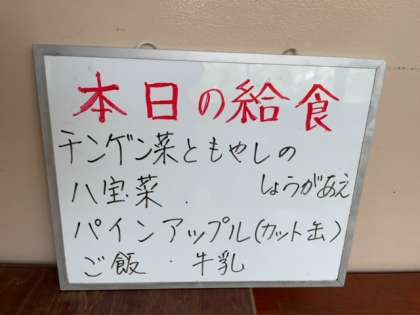 本日の給食
チンゲン菜ともやしの
しょうがあえ
八宝菜.
パインアップル(カット缶)
ご飯・牛乳